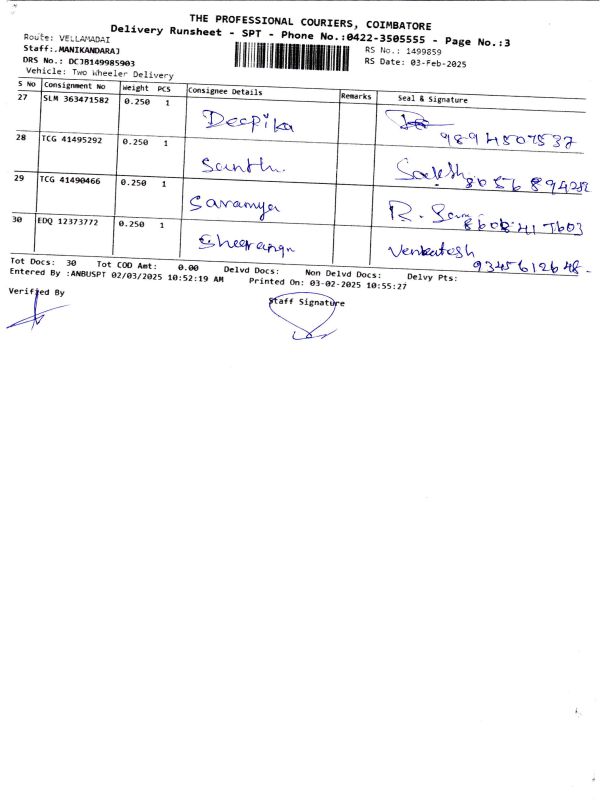 THE PROFESSIONAL COURIERS, COIMBATORE
Delivery Runsheet - SPT - Phone No.:0422-3505555 - Page No.:3
Route: VELLAMADAI
Staff:.MANIKANDARAJ
RS No.: 1499859
DRS No.: DCJB149985903
RS Date: 03-Feb-2025
Vehicle: Two Wheeler Delivery
S No Consignment No Weight PCS Consignee Details Remarks Seal & Signature
27 SLM 363471582 0.250 1 Deepika
9894507532
28 TCG 41495292 0.250 1 Santh. Sadesh
29 TCG 41490466 0.250 1 Saramya
30 EDQ 12373772 0.250 1 Venkatesh
9345612648-
Tot Docs: 30 Tot COD Amt: 0.00 Delvd Docs: Non Delvd Docs: Delvy Pts:
Entered By :ANBUSPT 02/03/2025 10:52:19 AM Printed On: 03-02-2025 10:55:27
Verified By Staff Signature